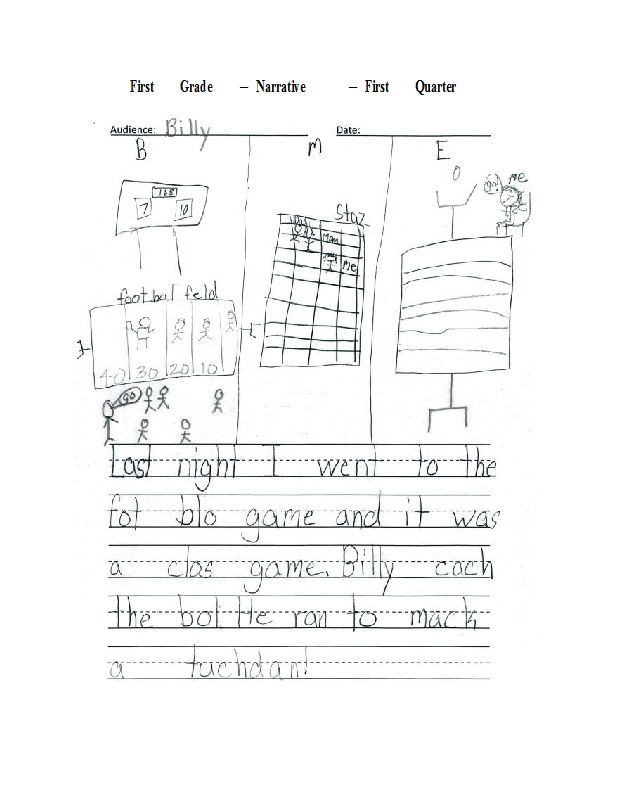 First Grade – Narrative – First Quarter
Audience: Billy Date:
B M E
go! me
7 10
Staz
Mom
Me
football feld
40 30 20 10
go
Last night I went to the
fot blo game and it was
a clos game. Billy coch
the bol He ran to mack
a tuchdan!